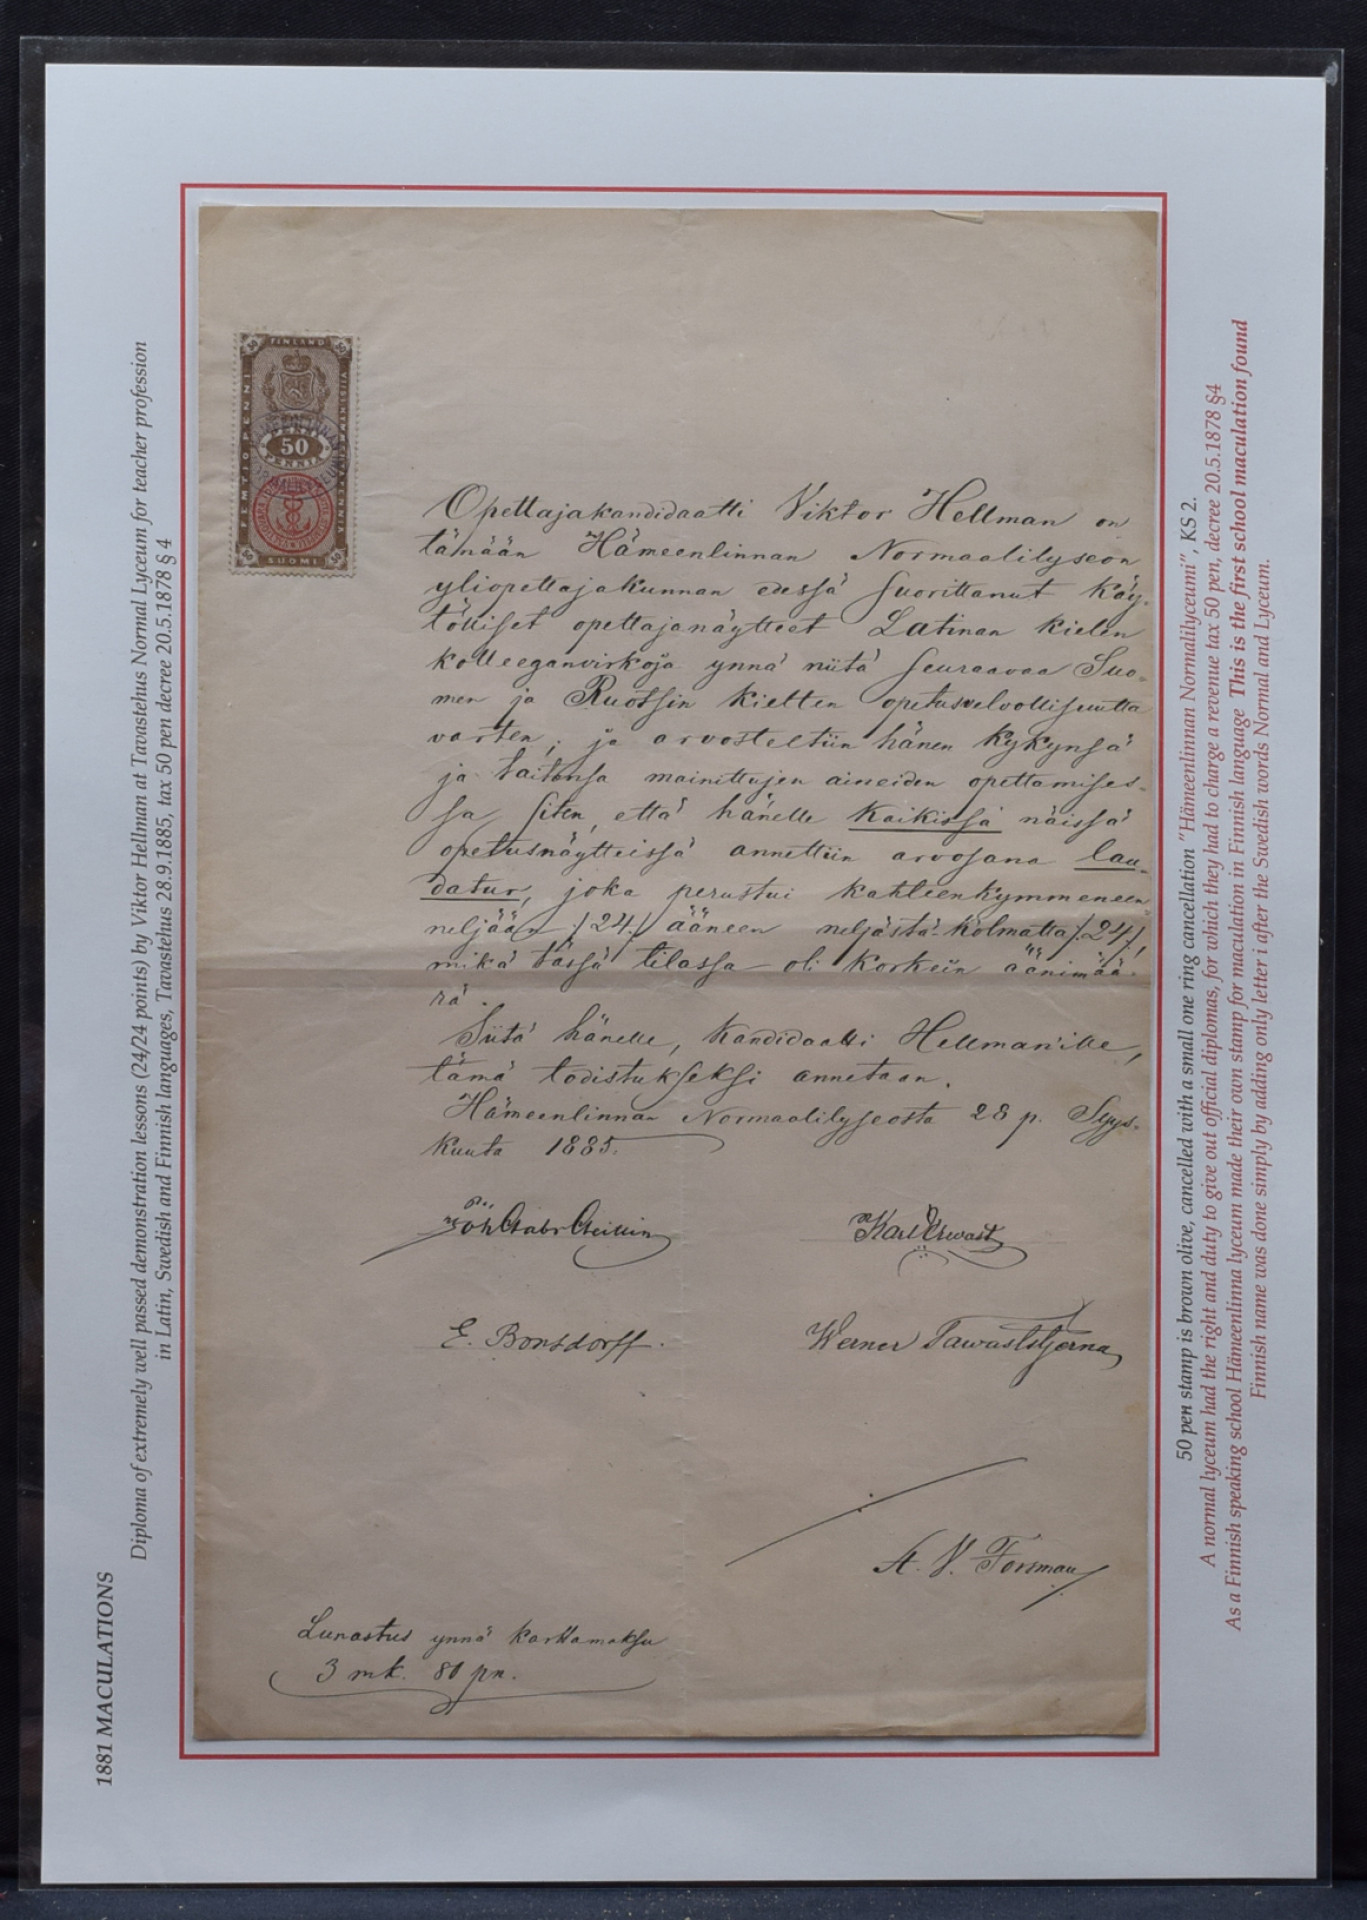 1881 MACULATIONS
Diploma of extremely well passed demonstration lessons (24/24 points) by Viktor Hellman at Tavastehus Normal Lyceum for teacher profession
in Latin, Swedish and Finnish languages, Tavastehus 28.9.1885, tax 50 pen decree 20.5.1878 § 4
FINLAND
50 50
FEMTIO PENNI
PENNI
50
PENNIÄ
SUOMI
50 50
Opettajakandidaatti Viktor Hellman on
tänään Hämeenlinnan Normaalilyseon
yliopettajakunnan edessä suorittanut käy-
tölliset opettajanäytteet Latinan kielen
kolleeganvirkoja ynnä niitä seuraavaa Suo-
men ja Ruotsin kielten opetusvelvollisuutta
varten, ja arvosteltiin hänen kykynsä
ja taitonsa mainittujen aineiden opettamises-
sa siten, että hänelle kaikissa näissä
opetusnäytteissä annettiin arvosana lau-
datur, joka perustui kahteenkymmeneen-
neljään /24/ ääneen neljästä kolmatta /24/,
mikä tässä tilassa oli korkein äänimää-
rä.
Siitä hänelle, kandidaatti Hellman'ille,
tämä todistukseksi annetaan.
Hämeenlinnan Normaalilyseosta 28 p. Syys-
kuuta 1885.
Joh Gabr Geitlin Karl Ervast
E. Bonsdorff. Werner Tawaststjerna
A. V. Forsman
Lunastus ynnä karttamaksu
3 mk. 80 pn.
50 pen stamp is brown olive, cancelled with a small one ring cancellation "Hämeenlinnan Normalilyceumi", KS 2.
A normal lyceum had the right and duty to give out official diplomas, for which they had to charge a revenue tax 50 pen, decree 20.5.1878 §4
As a Finnish speaking school Hämeenlinna lyceum made their own stamp for maculation in Finnish language This is the first school maculation found
Finnish name was done simply by adding only letter i after the Swedish words Normal and Lyceum.